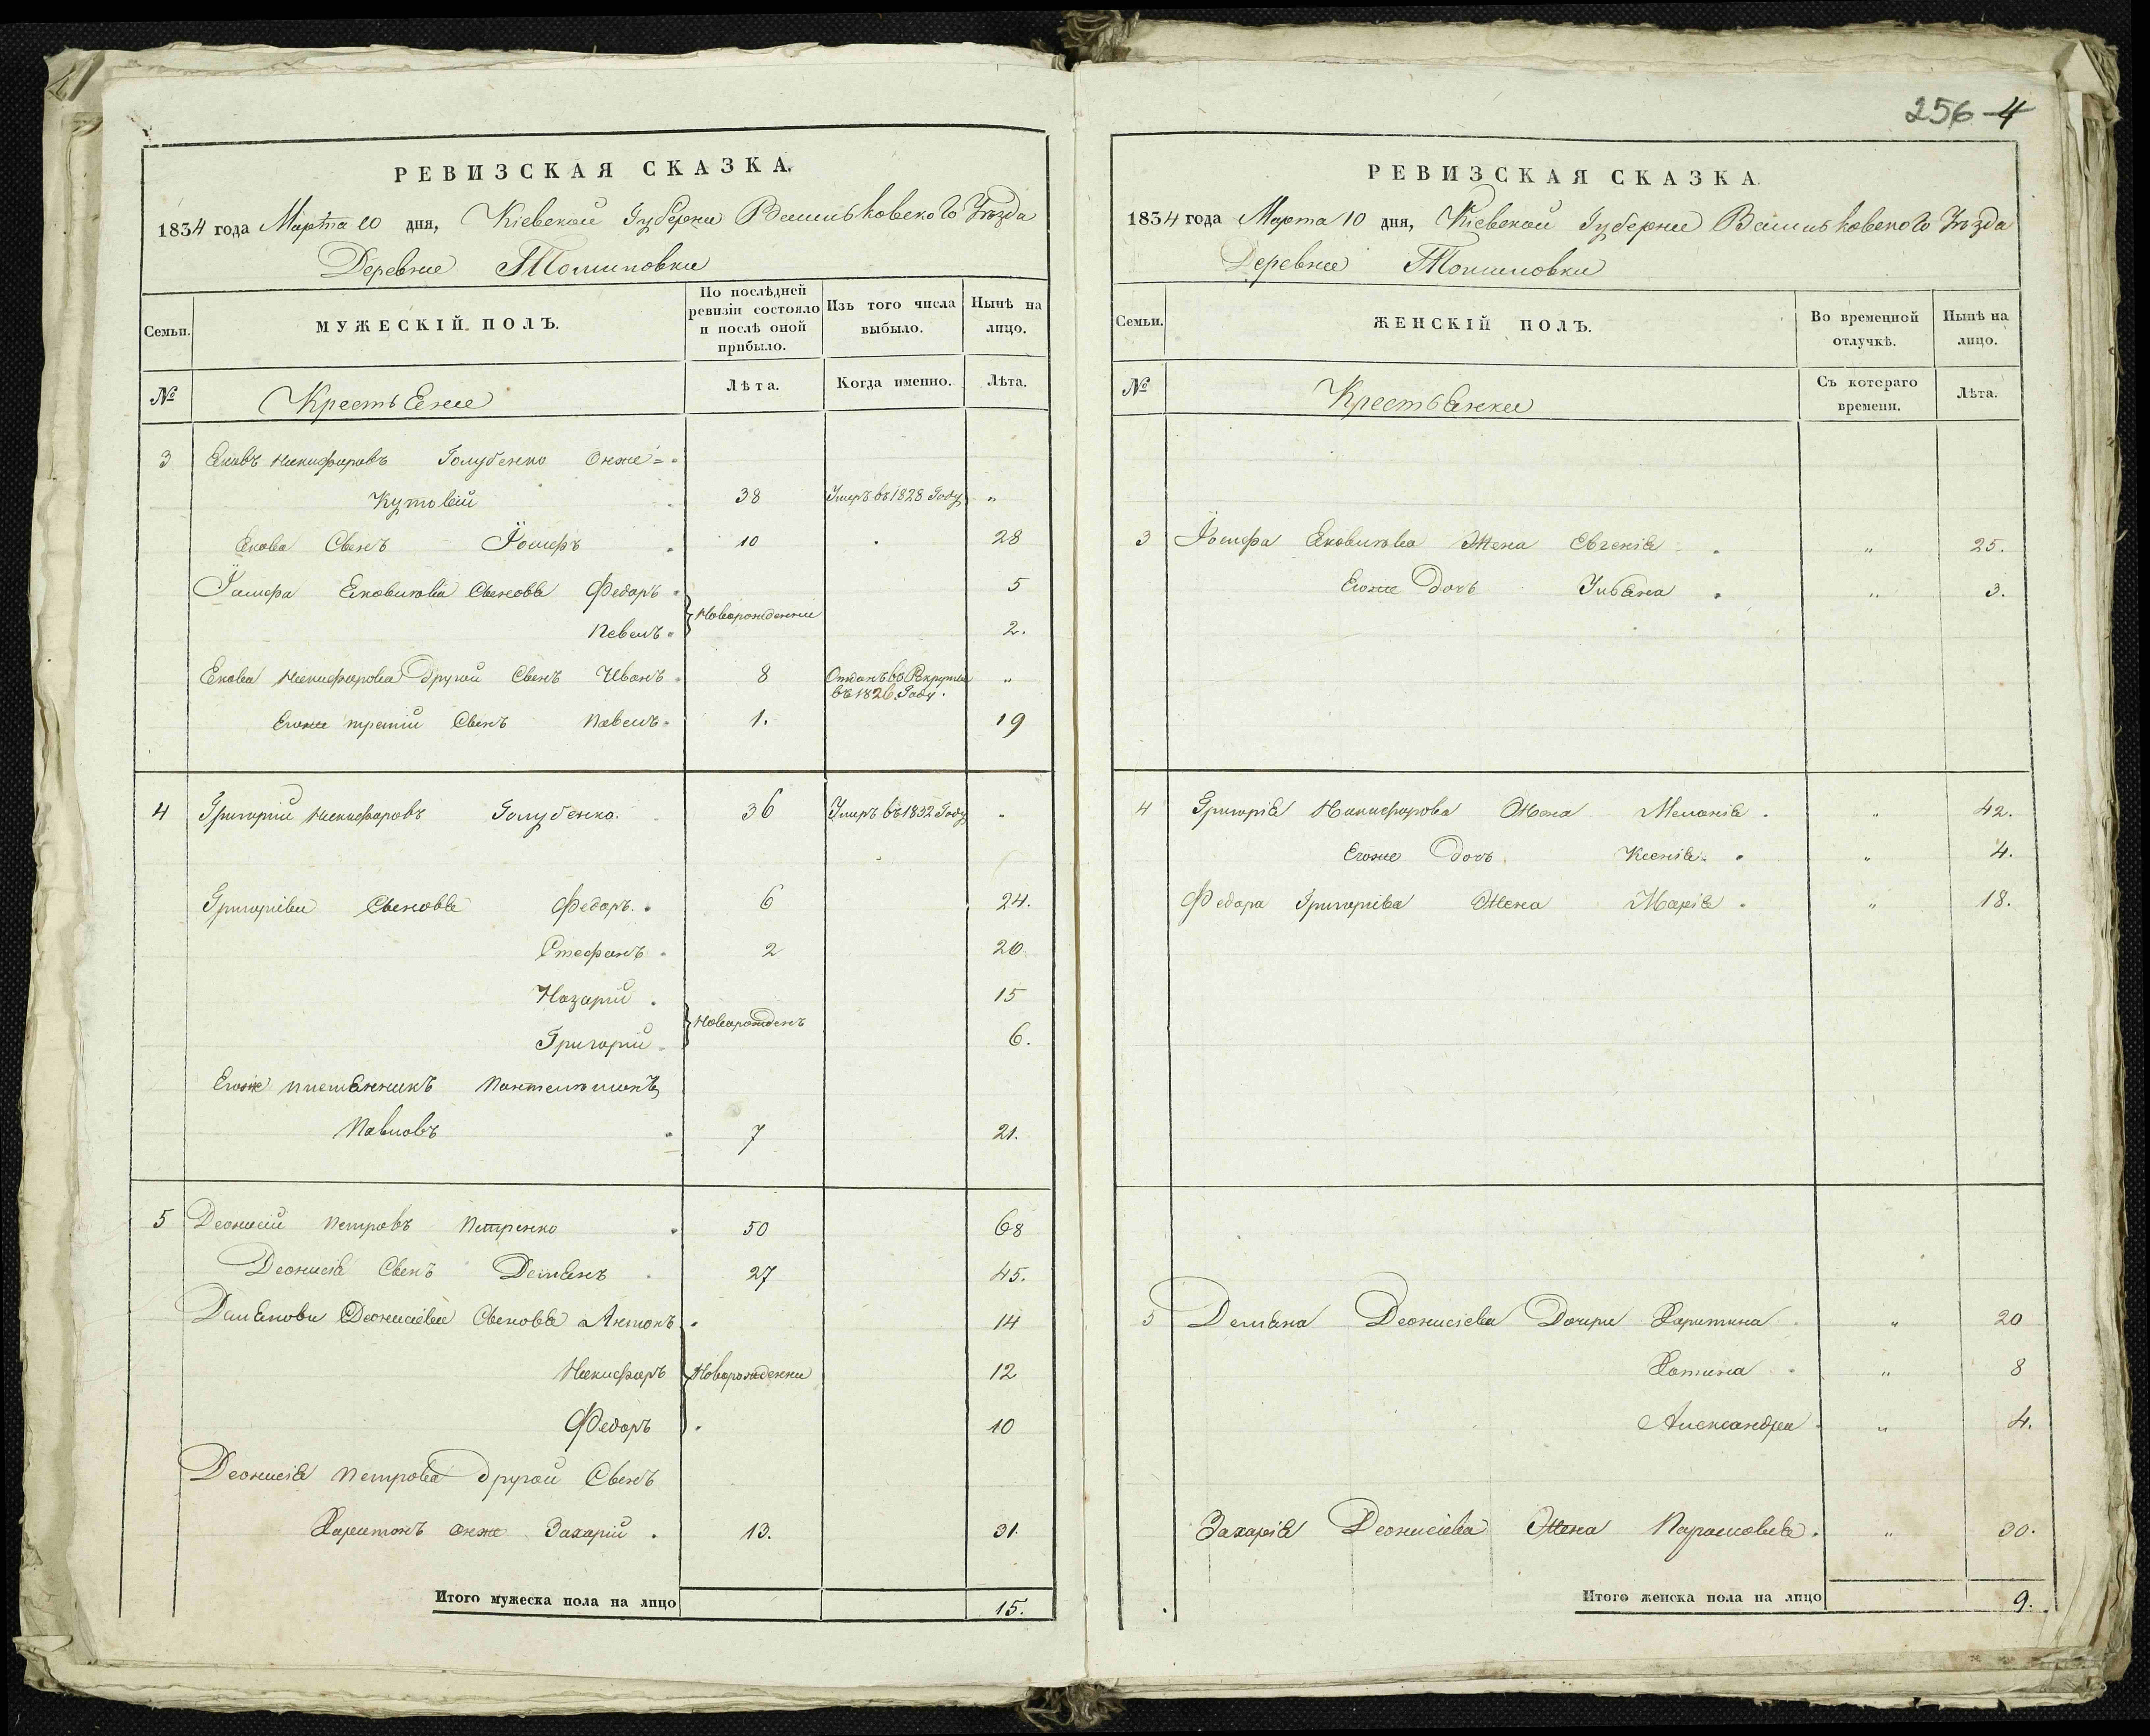 256-4
РЕВИЗСКАЯ СКАЗКА.
1834 года Марта 10 дня, Кіевской Губерни Васильковского Уѣзда
Деревне Томиловки
Семьи.
МУЖЕСКІЙ ПОЛЪ.
По послѣдней ревизіи состояло и послѣ оной прибыло.
Изъ того числа выбыло.
Нынѣ на лицо.
№
Крестьяне
Лѣта.
Когда именно.
Лѣта.
3 Яковъ Никифоровъ Голубенко Онже
Кутовій 38 Умеръ въ 1828 Году "
Якова Сынъ Іосифъ 10 28
Іосифа Яковлева Сыновья Федоръ 5
Новорожденние
Павелъ 2.
Якова Никифорова другой Сынъ Иванъ 8 Отданъ въ Рекруты въ 1826 Году. "
Егоже третій Сынъ Павелъ 1. 19
4 Григорій Никифоровъ Голубенко. 36 Умеръ въ 1832 Году "
Григоріеви Сыновья Федоръ. 6 24.
Стефанъ 2 20
Назарій 15
Новорожденъ
Григорій 6.
Егоже племянникъ Пантелимонъ
Павловъ 7 21.
5 Деонисій Петровъ Петренко 50 68
Деонисія Сынъ Демянъ 27 45.
Демянови Деонисіеви Сыновья Антонъ 14
Никифоръ Новорожденни 12
Федоръ 10
Деонисія Петрова другой Сынъ
Харитонъ онже Захарій 13. 31.
Итого мужеска пола на лицо 15.
РЕВИЗСКАЯ СКАЗКА.
1834 года Марта 10 дня, Кіевской Губерни Васильковского Уѣзда
Деревне Томиловки
Семьи.
ЖЕНСКІЙ ПОЛЪ.
Во временной отлучкѣ.
Нынѣ на лицо.
№
Крестьянки
Съ котораго времени.
Лѣта.
3 Іосифа Яковлева Жена Евгенія " 25.
Егоже Дочь Уліяна " 3.
4 Григорія Никифорова Жена Меланія " 42.
Егоже Дочь Ксенія " 4.
Федора Григоріева Жена Марія " 18.
5 Демяна Деонисіева Дочери Харитина " 20
Хотина " 8
Александра " 4.
Захарія Деонисіева Жена Парасковія " 30.
Итого женска пола на лицо 9.